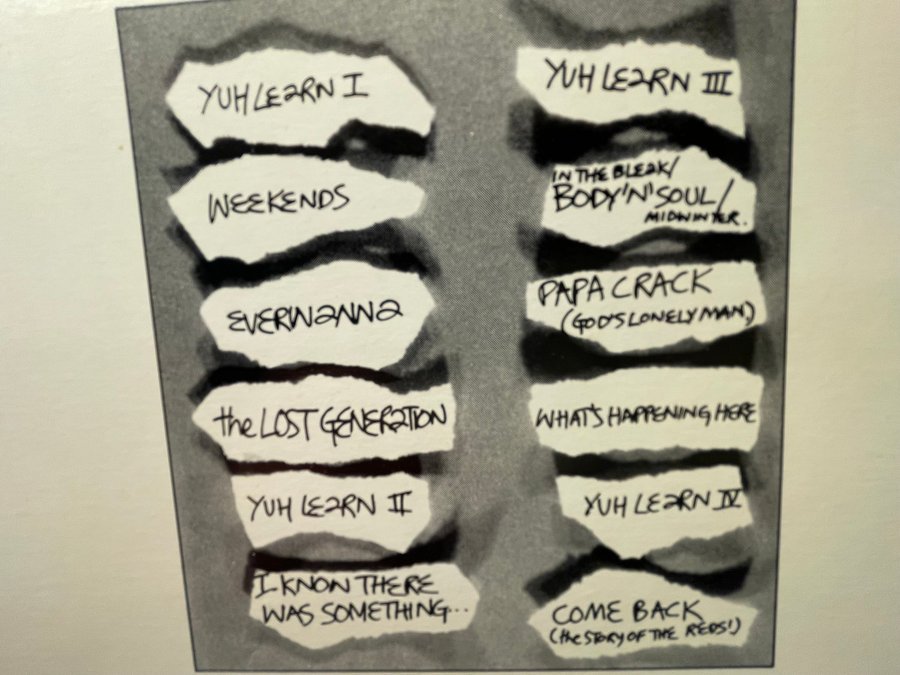 YUH LEARN I
WEEKENDS
EVERWANNA
the LOST GENERATION
YUH LEARN II
I KNOW THERE
WAS SOMETHING...
YUH LEARN III
IN THE BLEAK/
BODY'N'SOUL/
MIDWINTER.
PAPA CRACK
(GOD'S LONELY MAN)
WHAT'S HAPPENING HERE
YUH LEARN IV
COME BACK
(the STORY OF THE REDS!)